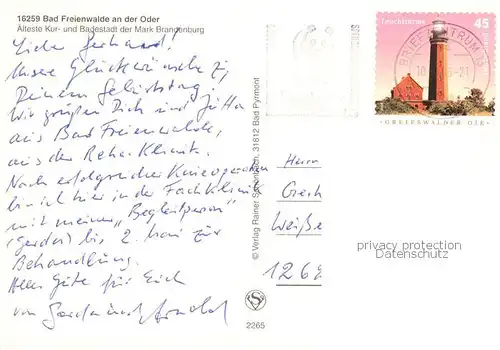 16259 Bad Freienwalde an der Oder
Älteste Kur- und Badestadt der Mark Brandenburg
Lieber Gerhard!
Unsere Glückwünsche z.
Deinem Geburtstag!
Wir grüßen Dich und Jutta
aus Bad Freienwalde,
aus der Reha-Klinik.
Nach erfolgreicher Knieoperation
bin ich hier in der Fachklinik
mit meiner "Begleitperson"
(Gerda) bis 2. Mai zur
Behandlung.
Alles Gute für Euch
von Gerda und
© Verlag Rainer 31812 Bad Pyrmont
2265
Leuchttürme
45
BRIEFZENTRUM 15
GREIFSWALDER OIE
Herrn
Gerh
Weiße
126
privacy protection
Datenschutz